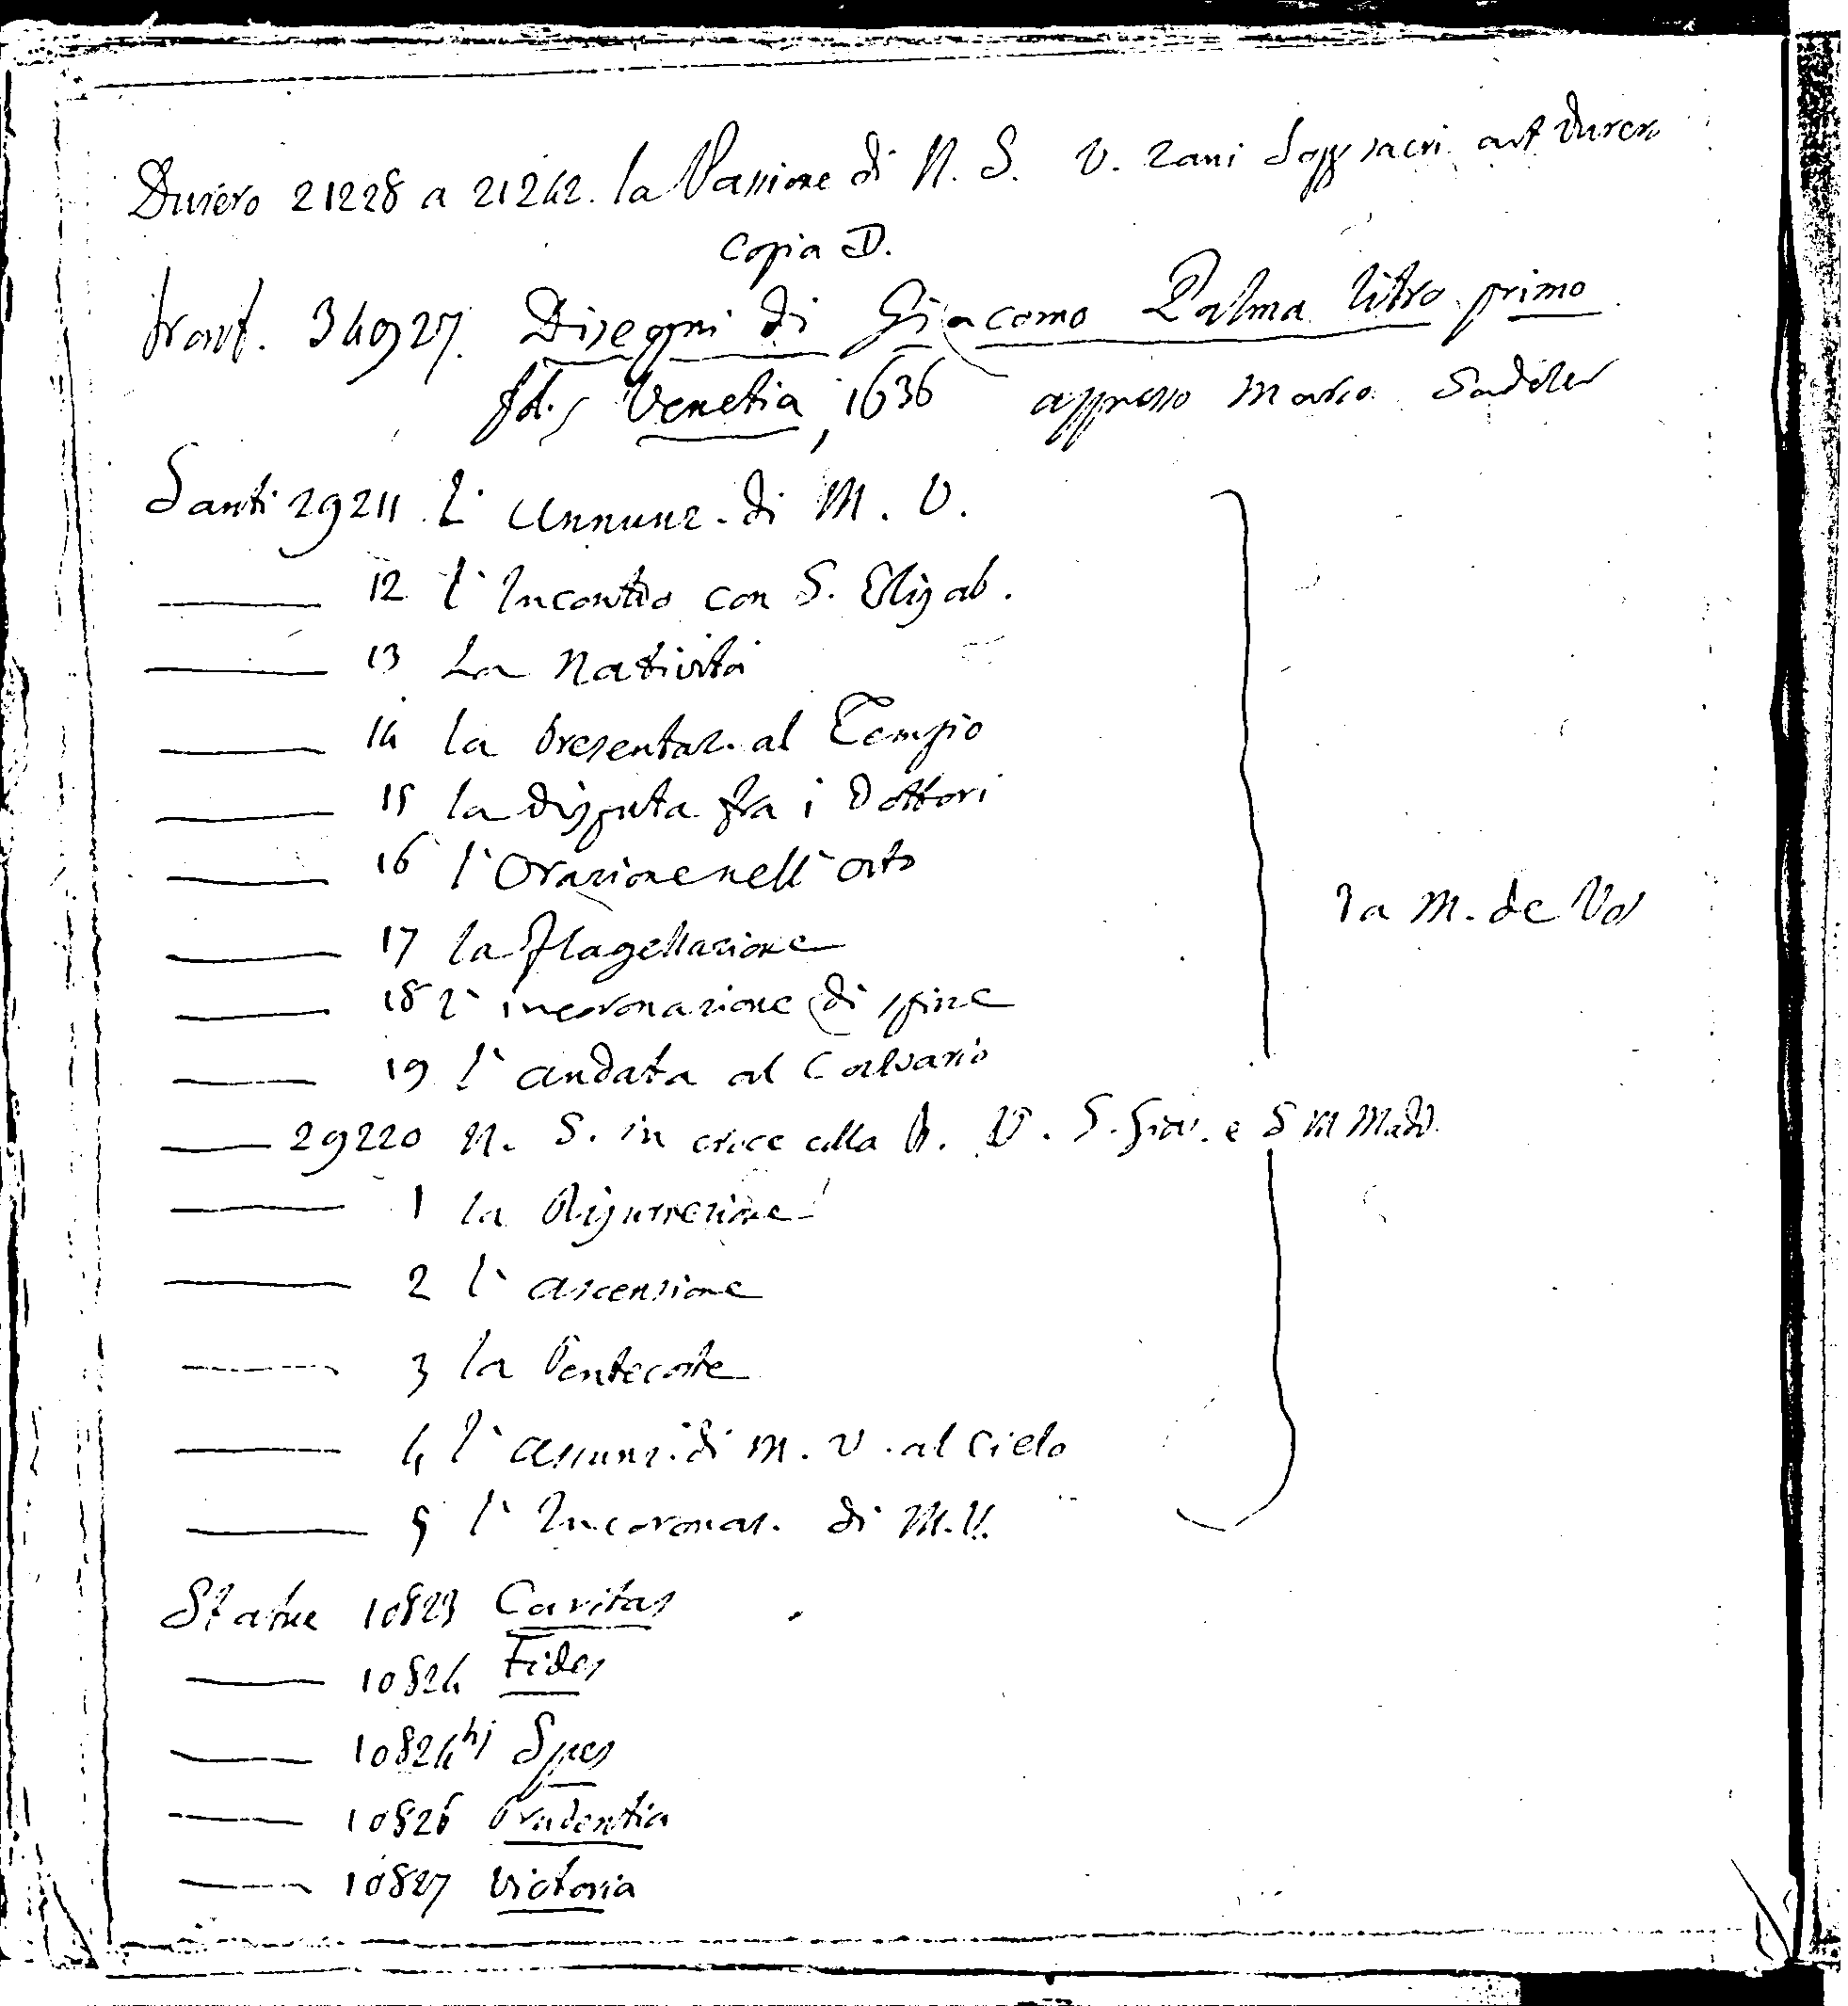 Durero 21228 a 21242. la Passione di N. S. V. Zani Sogg sacri art Durero
Copia D.
front. 34927. Disegni di Giacomo Palma libro primo
fol., Venetia, 1636 appresso Marco Sadeler
Santi 29211 l' Annunz. di M. V.
12 l' Incontro con S. Elisab.
13 La Natività
14 la Presentaz. al Tempio
15 la disputa fra i Dottori
16 l' Orazione nell' orto
17 la flagellazione
18 l' incoronazione di spine
19 l' andata al Calvario
da M. de Vos
29220 N. S. in croce colla B. V. S. Giov. e S M Madd.
1 la Risurrezione
2 l' ascensione
3 la Pentecoste
4 l' assunz. di M. V. al Cielo
5 l' Incoronaz. di M. V.
Statue 10823 Caritas
10824 Fides
10824 bis Spes
10826 Prudentia
10827 Victoria